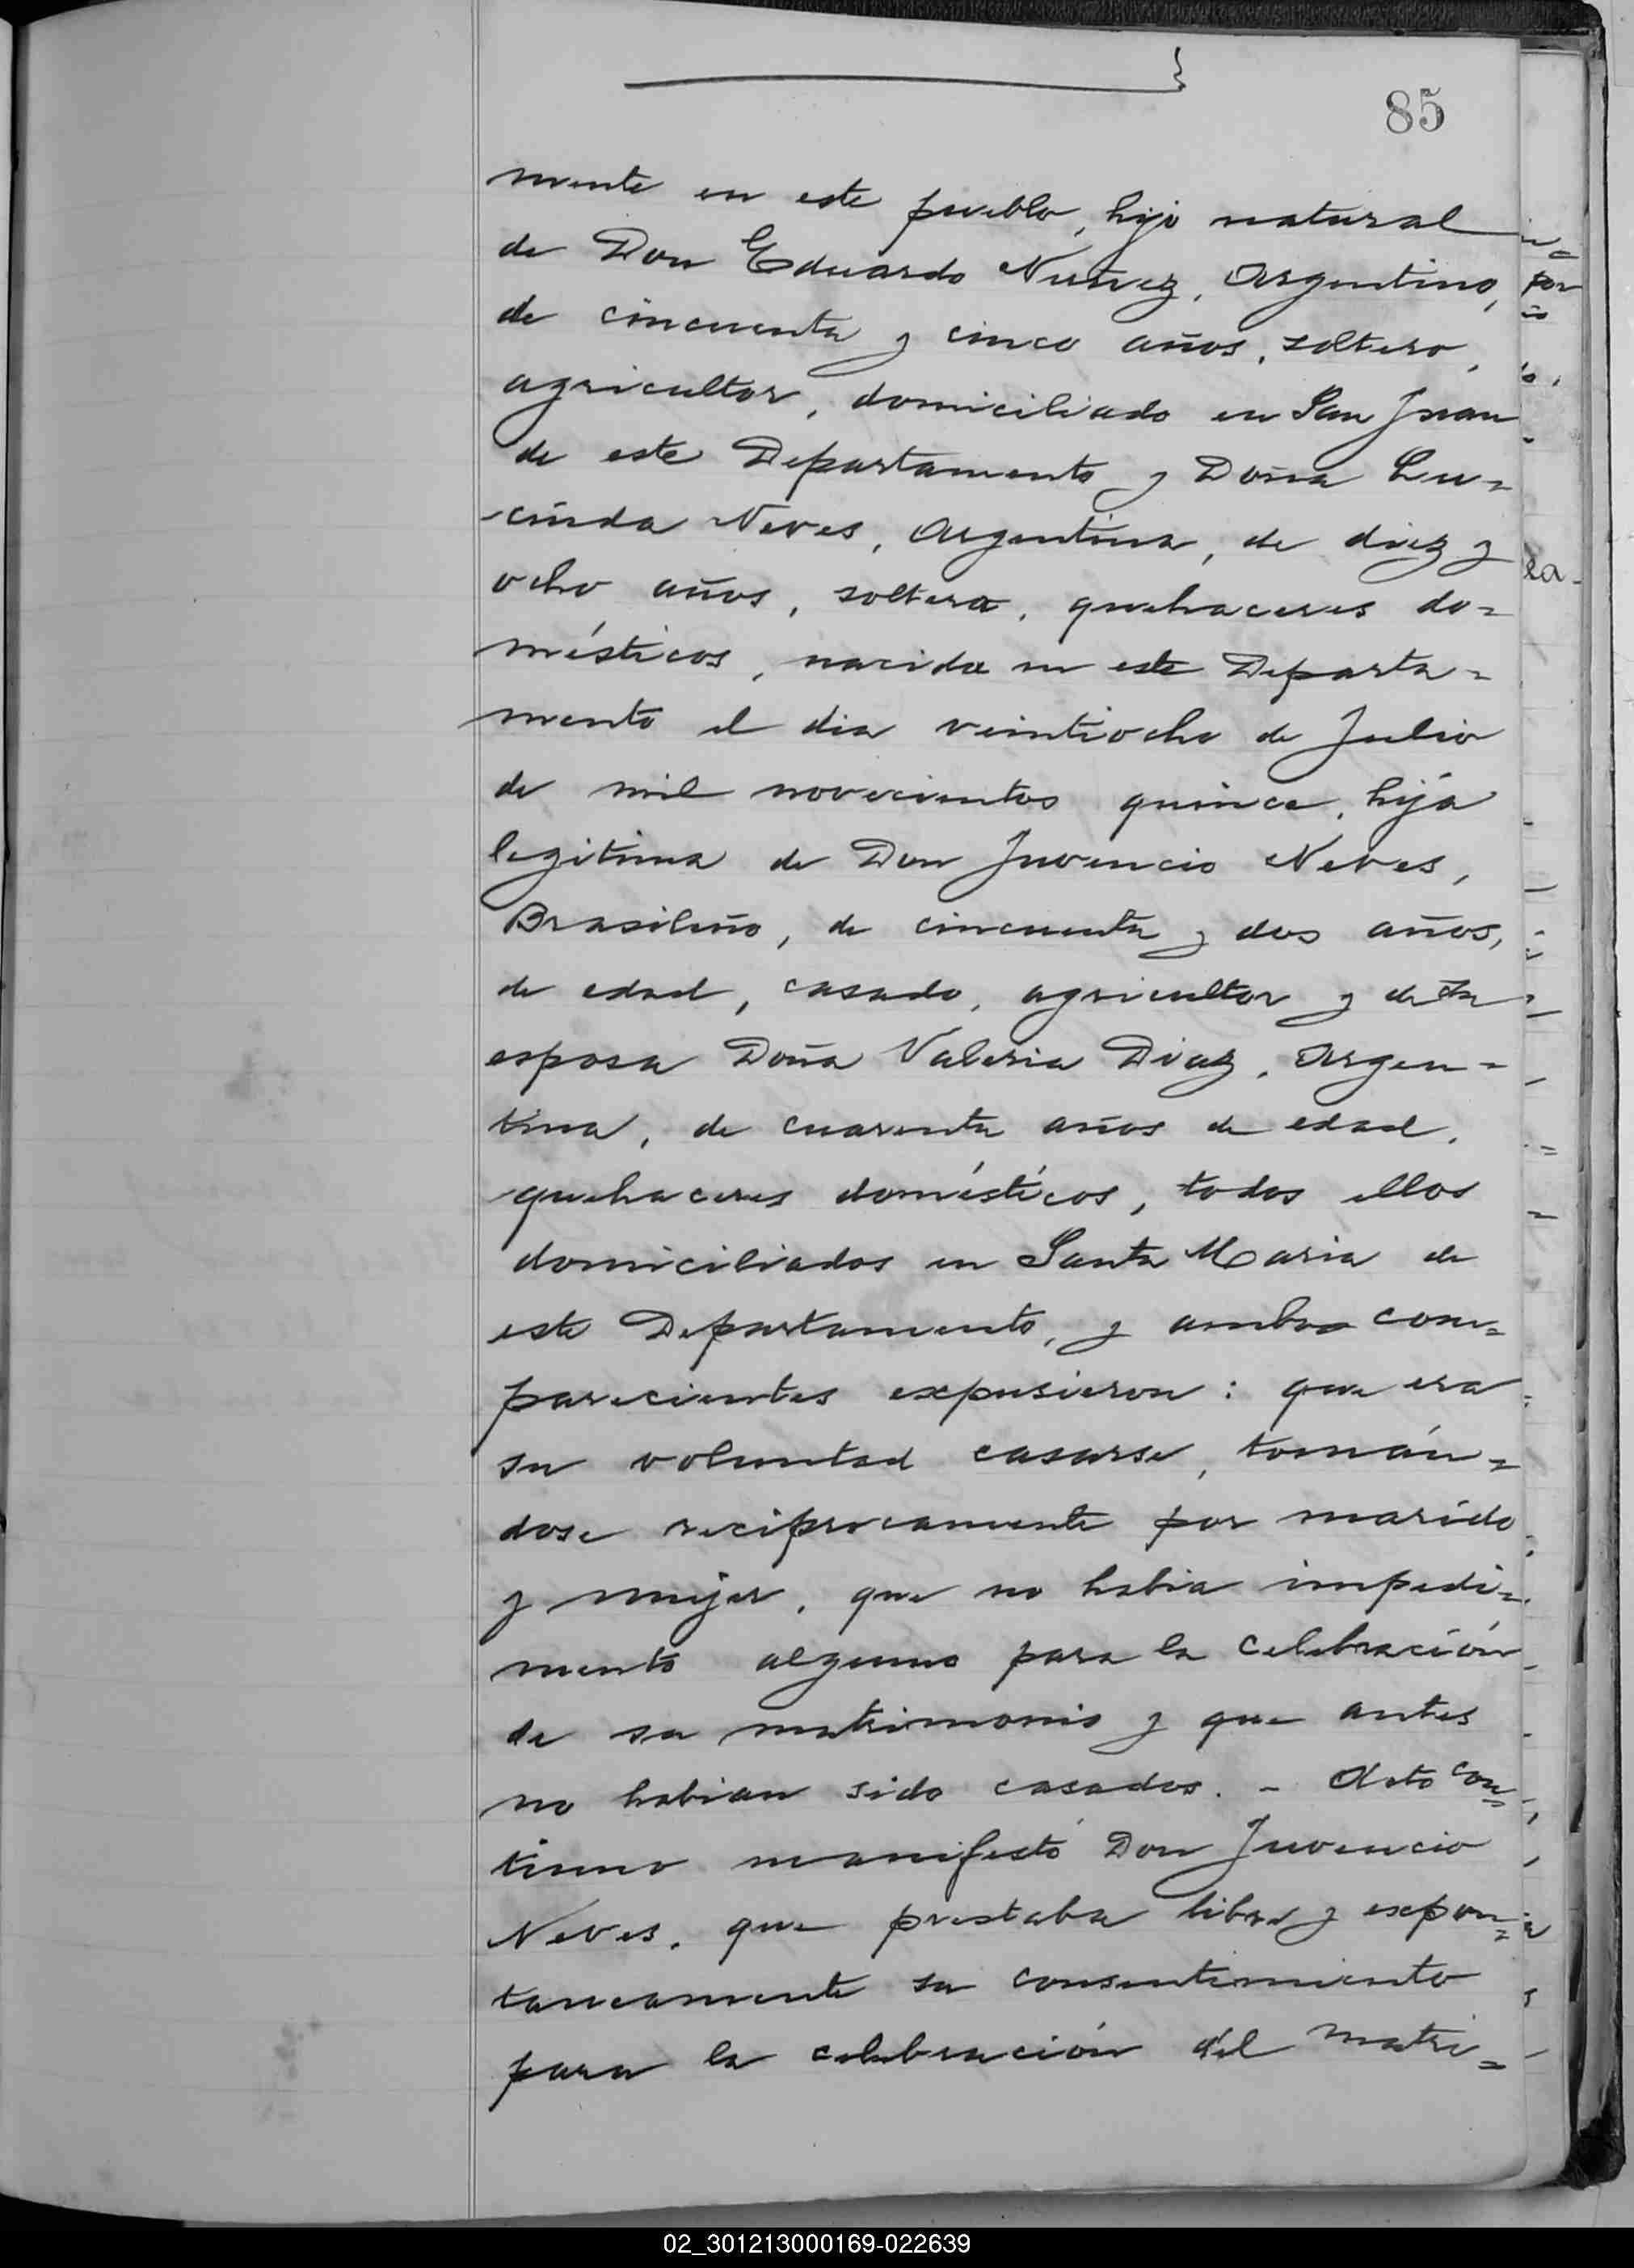 85
mente en este pueblo, hijo natural
de Don Eduardo Nuñez, Argentino,
de cincuenta y cinco años, soltero,
agricultor, domiciliado en San Juan
de este Departamento y Doña Lu=
-cinda Neves, Argentina, de diez y
ocho años, soltera, quehaceres do=
mésticos, nacida en este Departa=
mento el dia veintiocho de Julio
de mil novecientos quince, hija
legitima de Don Juvencio Neves,
Brasileño, de cincuenta y dos años,
de edad, casado, agricultor y de su
esposa Doña Valeria Diaz, Argen=
tina, de cuarenta años de edad,
quehaceres domésticos, todos ellos
domiciliados en Santa Maria de
este Departamento, y ambos com=
parecientes expusieron: que era
su voluntad casarse, tomán=
dose reciprocamente por marido
y mujer, que no habia impedi=
mento alguno para la celebración
de su matrimonio y que antes
no habian sido casados. - Acto con=
tinuo manifestó Don Juvencio
Neves, que prestaba libre y expon=
taneamente su consentimiento
para la celebración del matri=
por
02_301213000169-022639